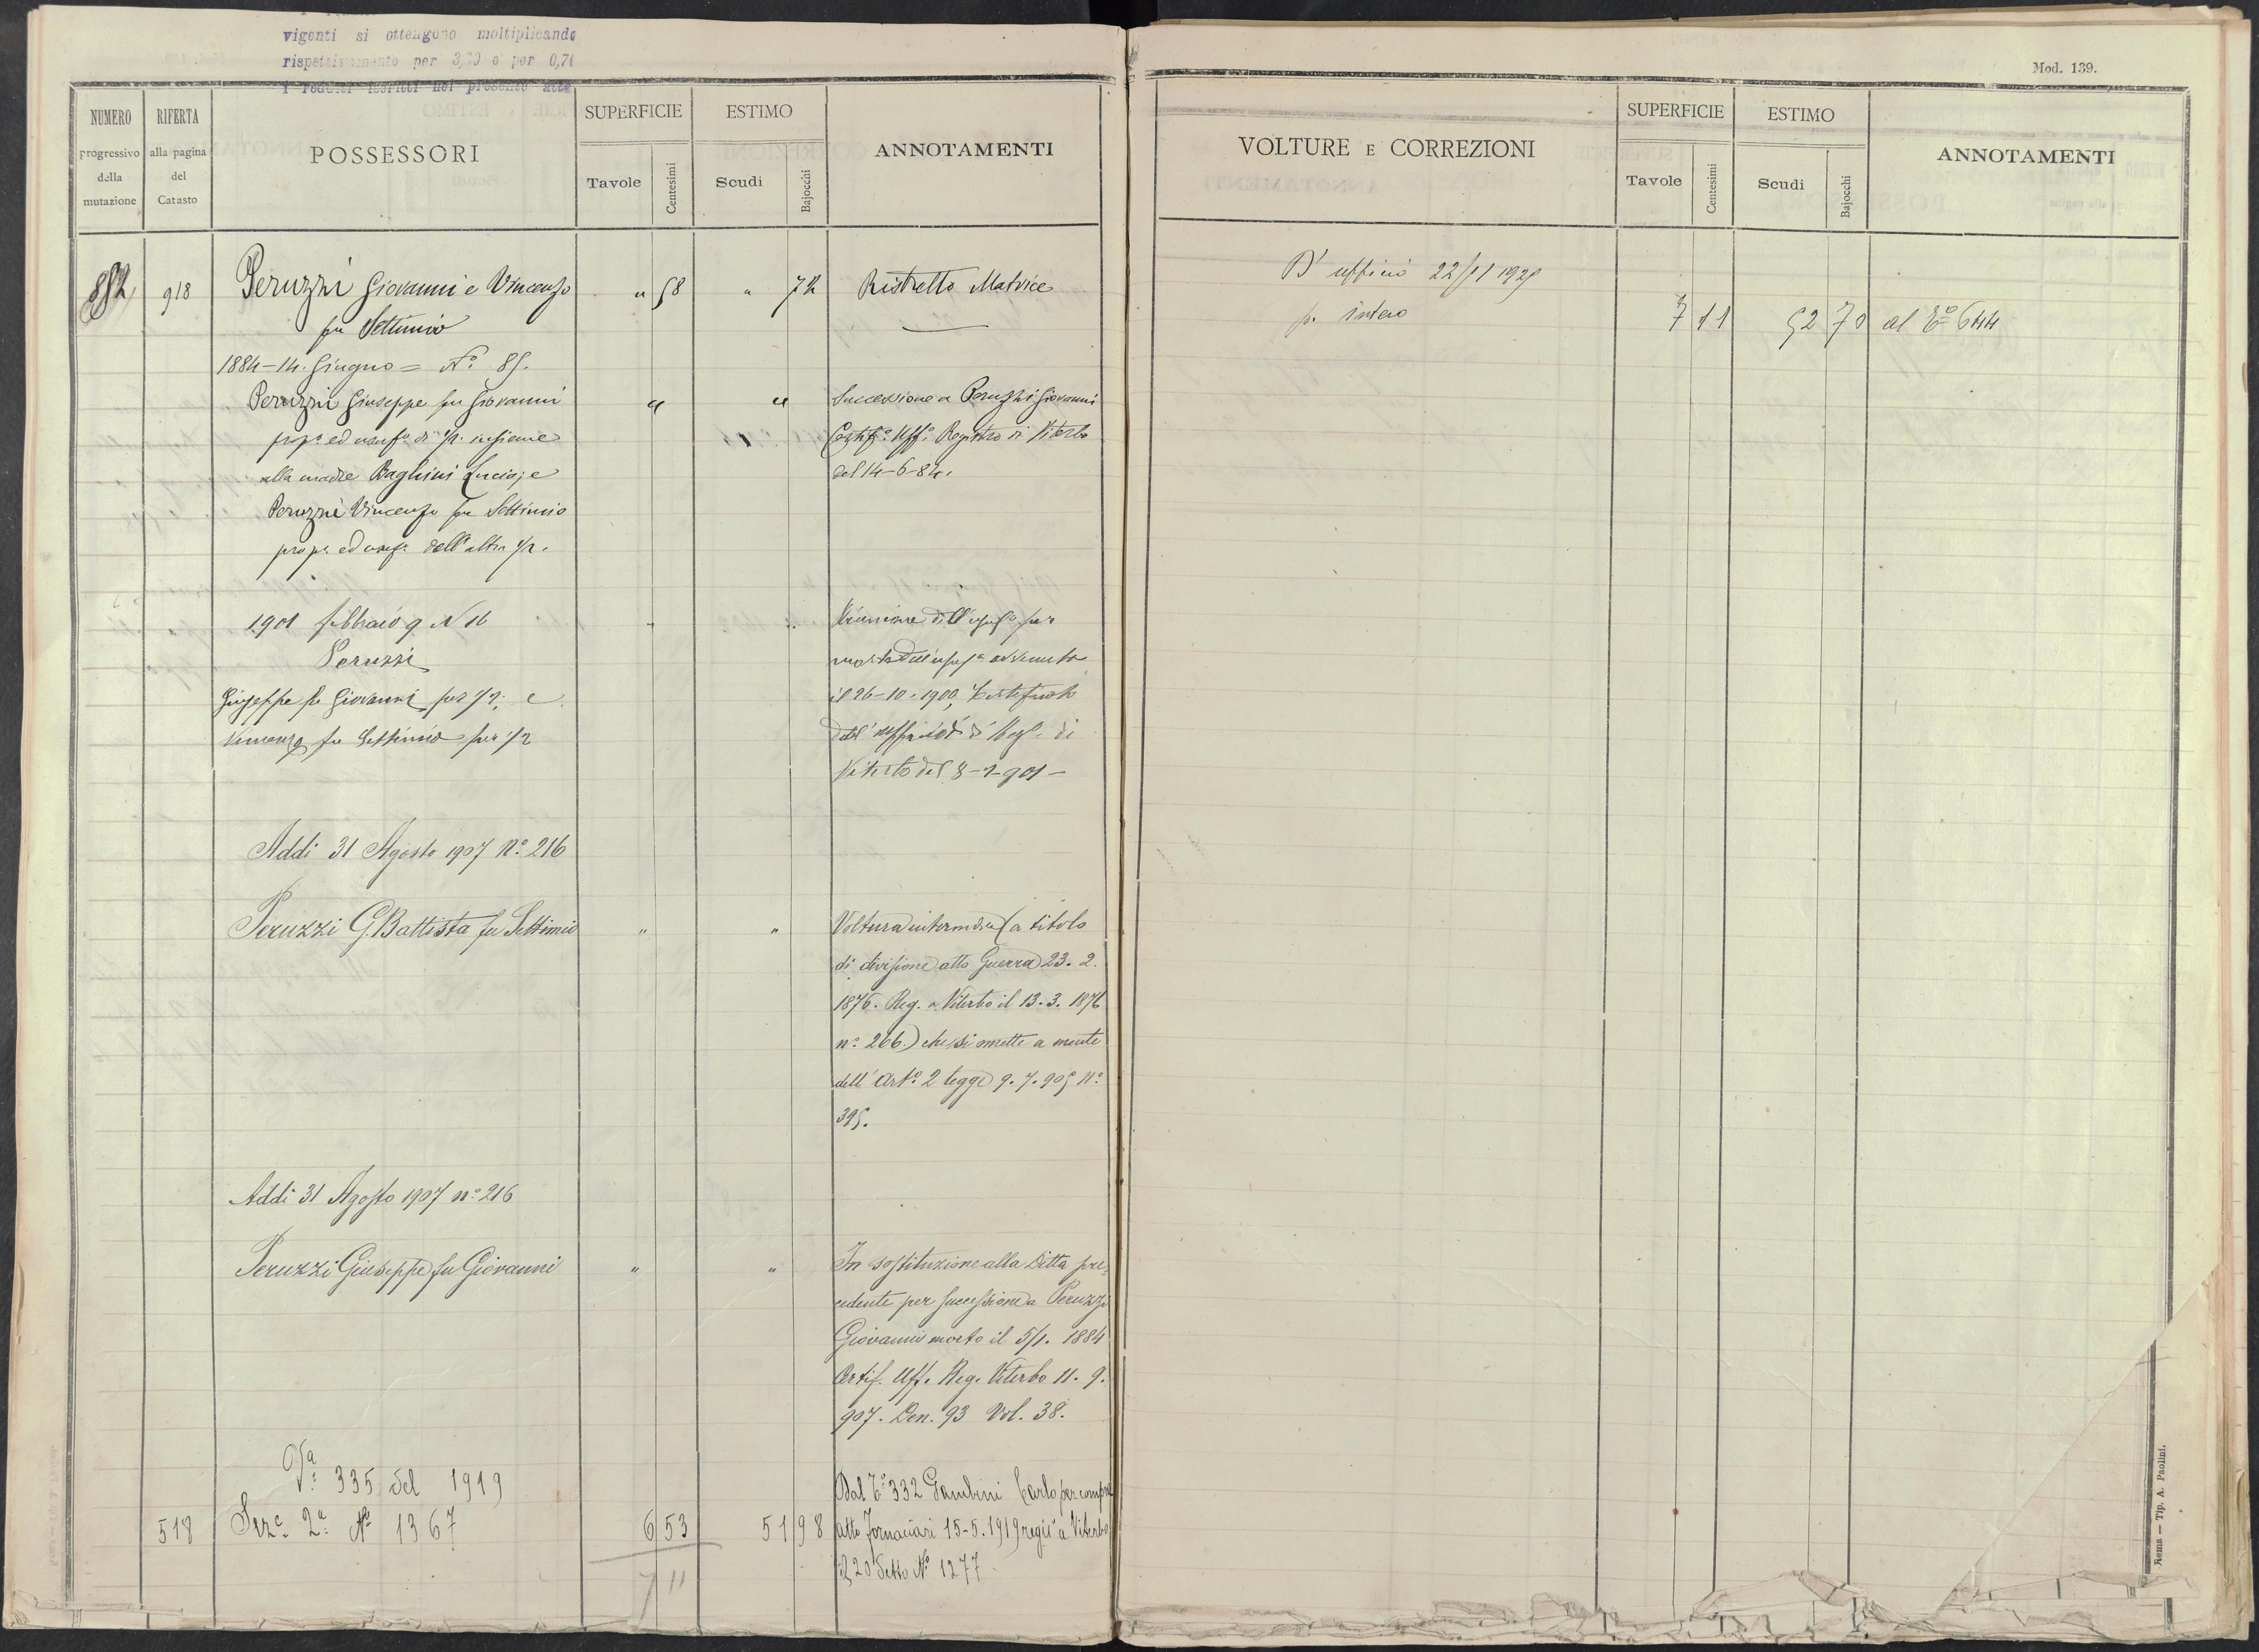 vigenti si ottengono moltiplicando
rispettivamente per 3,70 e per 0,74
i redditi iscritti nel presente atto
NUMERO
progressivo
della
mutazione
RIFERTA
alla pagina
del
Catasto
POSSESSORI
SUPERFICIE
Tavole
Centesimi
ESTIMO
Scudi
Bajocchi
ANNOTAMENTI
852
918
Peruzzi Giovanni e Vincenzo
fu Settimio
" 58
" 72
Ristretto Matrice
1884-14. Giugno = N.º 85.
Peruzzi Giuseppe fu Giovanni
prop.º ed usuf.º di 1/2 insieme
alla madre Baghini Lucia; e
Peruzzi Vincenzo fu Settimio
prop.º ed usuf.º dell'altra 1/2.
"
"
Successione a Peruzzi Giovanni
Certif.º Uff.º Registro di Viterbo
del 14-6-84.
1901 febbraio 9 N 16
Peruzzi
Giuseppe fu Giovanni per 1/2; e
Vincenzo fu Settimio per 1/2
Riunione dell'usuf.º per
morte dell'usuf.ª avvenuta
il 26-10-1900, Certificato
dell'ufficio di Reg. di
Viterbo del 8-2-901-
Addi 31 Agosto 1907 Nº 216
Peruzzi G. Battista fu Settimio
"
"
Voltura intermedia (a titolo
di divisione atto Guerra 23. 2.
1876. Reg. a Viterbo il 13. 3. 1876
nº 266.) che si omette a mente
dell'Artº 2 legge 9. 7. 905 Nº
395.
Addi 31 Agosto 1907 nº 216
Peruzzi Giuseppe fu Giovanni
"
"
In sostituzione alla Ditta pre=
cedente per successione a Peruzzi
Giovanni morto il 5/1. 1884
Certif. Uff. Reg. Viterbo 11. 9.
907. Den. 93 Vol. 38.
Vª 335 del 1919
518
Sezº 2ª Nº 1367
6 53
51 98
7 11
Dal Tº 332 Gambini Carlo per compra
atto Fornaciari 15-5.1919 regit.º a Viterbo
il 20 detto Nº 1277
Mod. 139.
VOLTURE E CORREZIONI
SUPERFICIE
Tavole
Centesimi
ESTIMO
Scudi
Bajocchi
ANNOTAMENTI
D'ufficio 22/11 1929
p. intero
7 11
52 70
al Tº 644
Roma — Tip. A. Paolini.